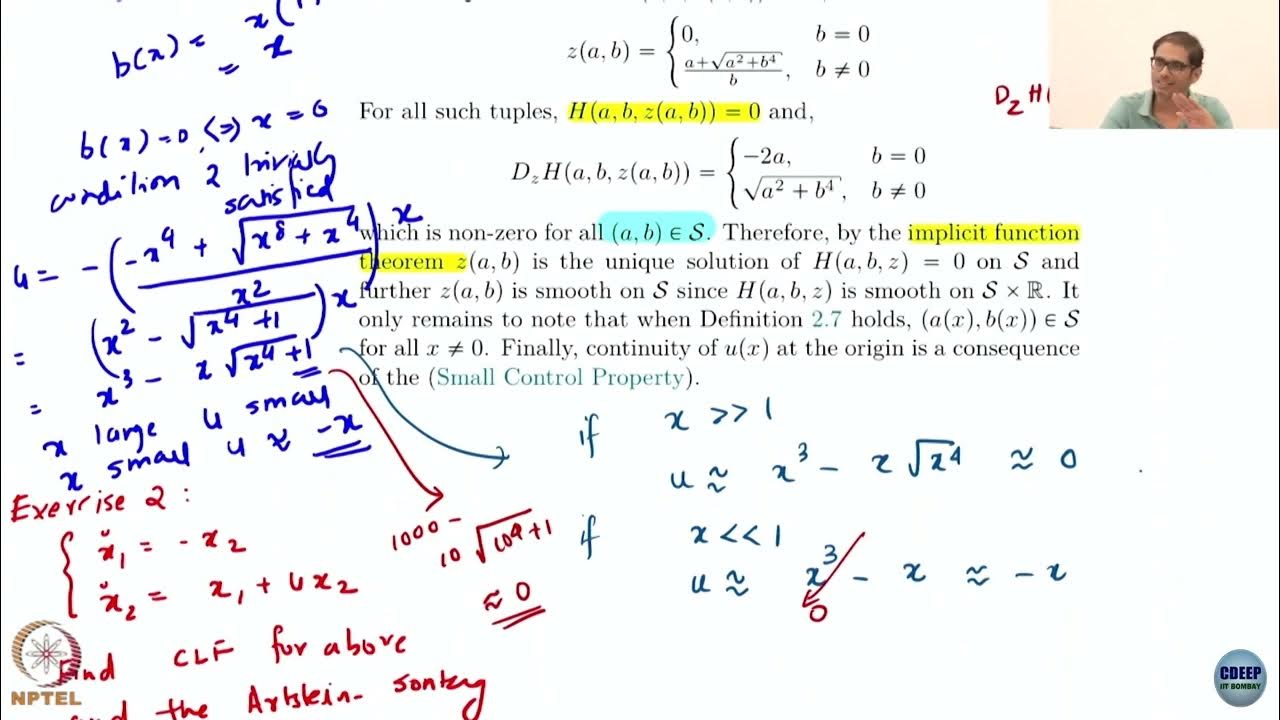 b(x) = x(1
= x
b(x)=0 <=> x = 0
condition 2 trivially
satisfied
u = -(-x^4 + √(x^8 + x^4) / x^2) x
= (x^2 - √(x^4 + 1)) x
= x^3 - x √(x^4 + 1)
x large u small
x small u ≈ -x
Exercise 2 :
{ ẋ_1 = - x_2
ẋ_2 = x_1 + u x_2
Find CLF for above
and the Artstein- sontag
z(a, b) = { 0, b = 0
(a+√(a^2+b^4))/b, b ≠ 0
For all such tuples, H(a, b, z(a, b)) = 0 and,
D_z H(a, b, z(a, b)) = { −2a, b = 0
√(a^2 + b^4), b ≠ 0
which is non-zero for all (a, b) ∈ S. Therefore, by the implicit function
theorem z(a, b) is the unique solution of H(a, b, z) = 0 on S and
further z(a, b) is smooth on S since H(a, b, z) is smooth on S × ℝ. It
only remains to note that when Definition 2.7 holds, (a(x), b(x)) ∈ S
for all x ≠ 0. Finally, continuity of u(x) at the origin is a consequence
of the (Small Control Property).
D_z H(
if x >> 1
u ≈ x^3 - x √x^4 ≈ 0
if x << 1
u ≈ x^3 - x ≈ - x
0
1000 -
10 √(10^4+1)
≈ 0
NPTEL
CDEEP
IIT BOMBAY